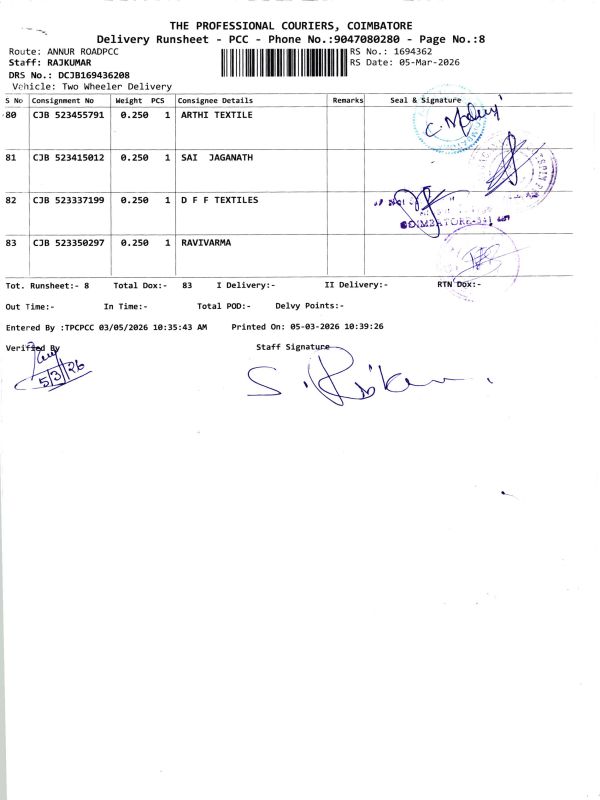 THE PROFESSIONAL COURIERS, COIMBATORE
Delivery Runsheet - PCC - Phone No.:9047080280 - Page No.:8
Route: ANNUR ROADPCC RS No.: 1694362
Staff: RAJKUMAR RS Date: 05-Mar-2026
DRS No.: DCJB169436208
Vehicle: Two Wheeler Delivery
S No Consignment No Weight PCS Consignee Details Remarks Seal & Signature
80 CJB 523455791 0.250 1 ARTHI TEXTILE
81 CJB 523415012 0.250 1 SAI JAGANATH
82 CJB 523337199 0.250 1 D F F TEXTILES
COIMBATORE-641
83 CJB 523350297 0.250 1 RAVIVARMA
Tot. Runsheet:- 8 Total Dox:- 83 I Delivery:- II Delivery:- RTN Dox:-
Out Time:- In Time:- Total POD:- Delvy Points:-
Entered By :TPCPCC 03/05/2026 10:35:43 AM Printed On: 05-03-2026 10:39:26
Verified By Staff Signature
5/3/26